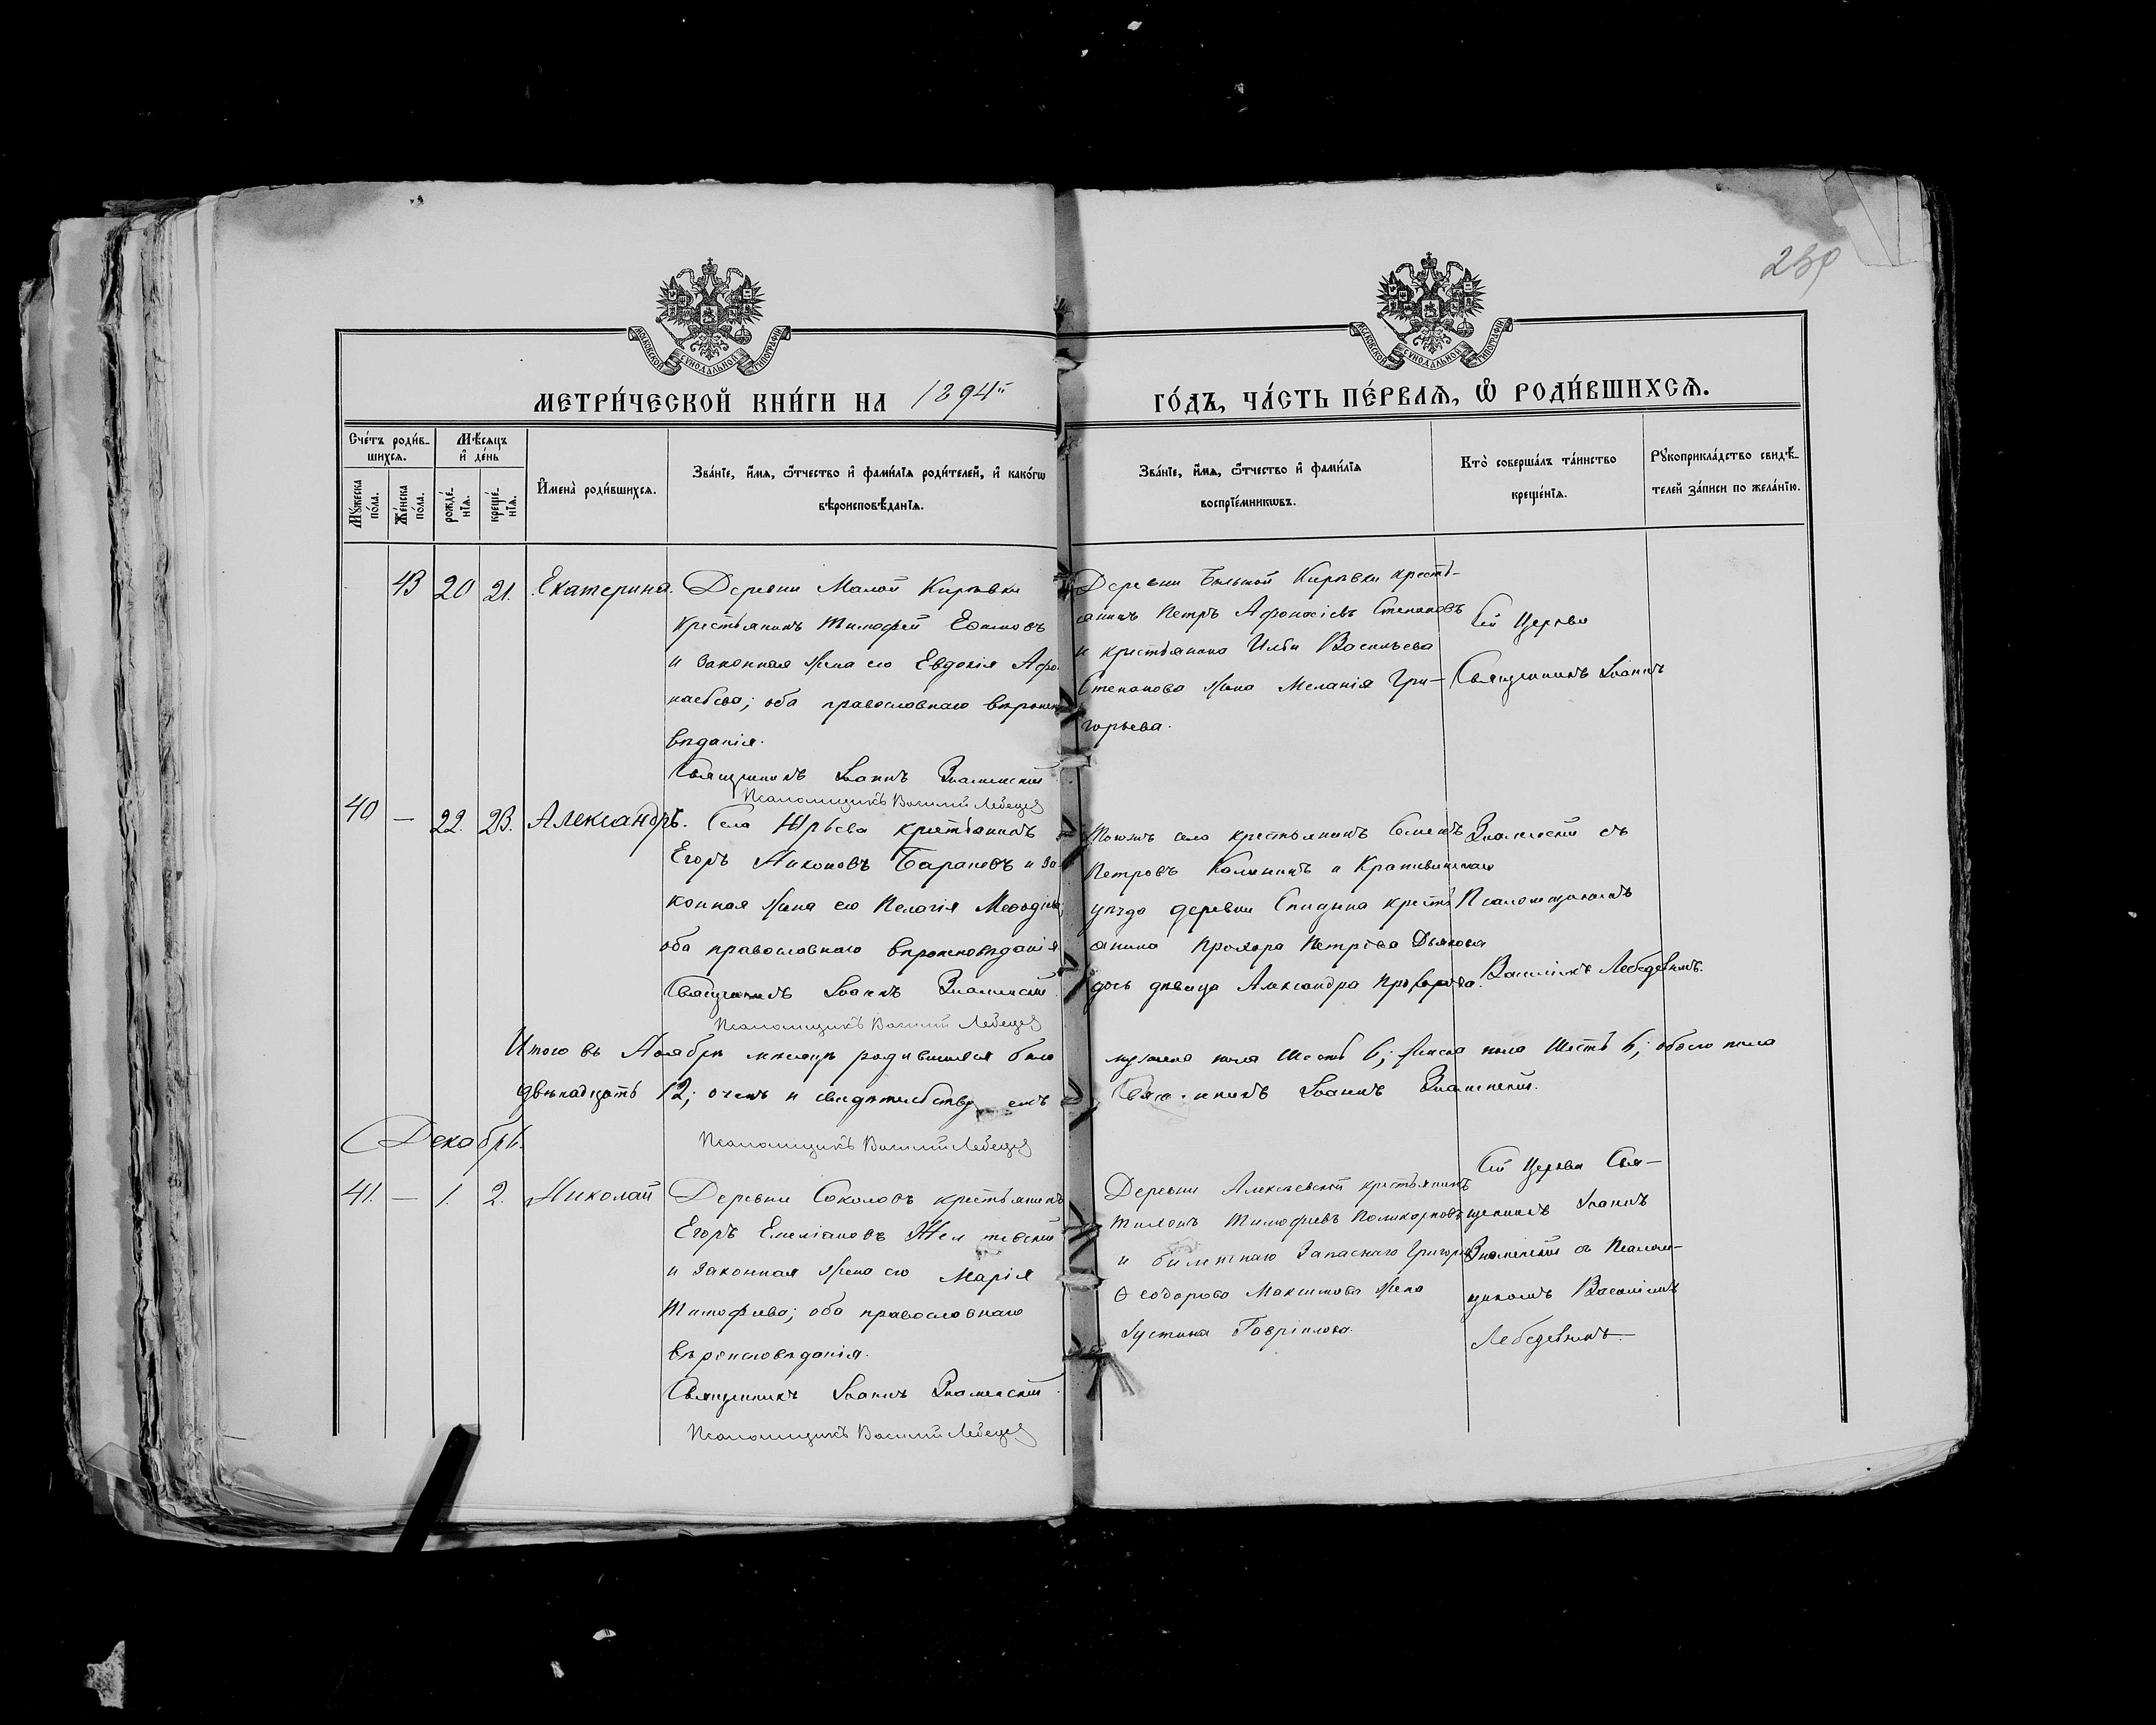 230
МОСКОВСКОЙ СѴНОДАЛЬНОЙ ТИПОГРАФІИ
МОСКОВСКОЙ СѴНОДАЛЬНОЙ ТИПОГРАФІИ
МЕТРИ́ЧЕСКОЙ КНИ́ГИ НА 1894й
ГО́ДЪ, ЧА́СТЬ ПЕ́РВАѦ, Ѽ РОДИ́ВШИХСѦ.
Сче́тъ роди́в-
шихсѧ.
Мꙋ́жеска по́ла.
Же́нска по́ла.
Мѣ́сѧцъ
и҆ де́нь
рожде́-
нїѧ.
креще́-
нїѧ.
И҆мена̀ роди́вшихсѧ.
Зва́нїе, и҆́мѧ, ѻ҆́тчество и҆ фами́лїѧ роди́телей, и҆ како́гѡ
вѣроисповѣ́данїѧ.
Зва́нїе, и҆́мѧ, ѻ҆́тчество и҆ фами́лїѧ
воспрїе́мникѡвъ.
Кто̀ соверша́лъ та́инство
креще́нїѧ.
Рꙋкоприкла́дство свидѣ́-
телей за́писи по жела́нїю.
43 20 21. Екатерина.
Деревни Малой Кирѣвки
крестьянинъ Тимофей Ефимовъ
и законная жена его Евдокія Афо-
насьева; оба православнаго вѣроиспо
вѣданія.
Священникъ Іоаннъ Знаменскій
Псаломщикъ Василій Лебедев
Деревни Большой Кирѣвки кресть-
янинъ Петръ Афонасіевъ Степановъ
и крестьянина Ильи Васильева
Степанова жена Меланія Гри-
горьева.
Сей Церкви
Священникъ Іоаннъ
40 — 22. 23. Александръ.
Села Юрьева крестьянинъ
Егоръ Никоновъ Барановъ и за-
конная жена его Пелагія Мефодіева;
оба православнаго вѣроисповѣданія
Священникъ Іоаннъ Знаменскій
Псаломщикъ Василій Лебедев
села крестьянинъ Семенъ
Петровъ Калининъ и Крапивинскаго
уѣзда деревни Спицына кресть
янина Прохора Петрова Дьякова
дочь дѣвица Александра Прохорова.
Знаменскій съ
Псаломщикомъ
Василіемъ Лебедевымъ.
Итого въ Ноябрѣ мѣсяцѣ родившихся было
мужеска пола шесть 6; женска пола шесть 6; обоего пола
двѣнадцать 12; о чемъ и свидѣтельствуемъ
Священникъ Іоаннъ Знаменскій.
Псаломщикъ Василій Лебедев
Декабрь.
41. — 1. 2. Николай
Деревни Соколовъ крестьянинъ
Егоръ Емеліановъ
и законная жена его Марія
Тимофеева; оба православнаго
вѣроисповѣданія.
Священникъ Іоаннъ Знаменскій
Псаломщикъ Василій Лебедев
Деревни Алексѣевской крестьянинъ
Тихонъ Тимофѣевъ Поликарповъ
и билетнаго запаснаго Григорія
Ѳеодорова Максимова жена
Іустина Гавріилова.
Сей Церкви Свя-
щенникъ Іоаннъ
Знаменскій съ Псалом-
щикомъ Василіемъ
Лебедевымъ.